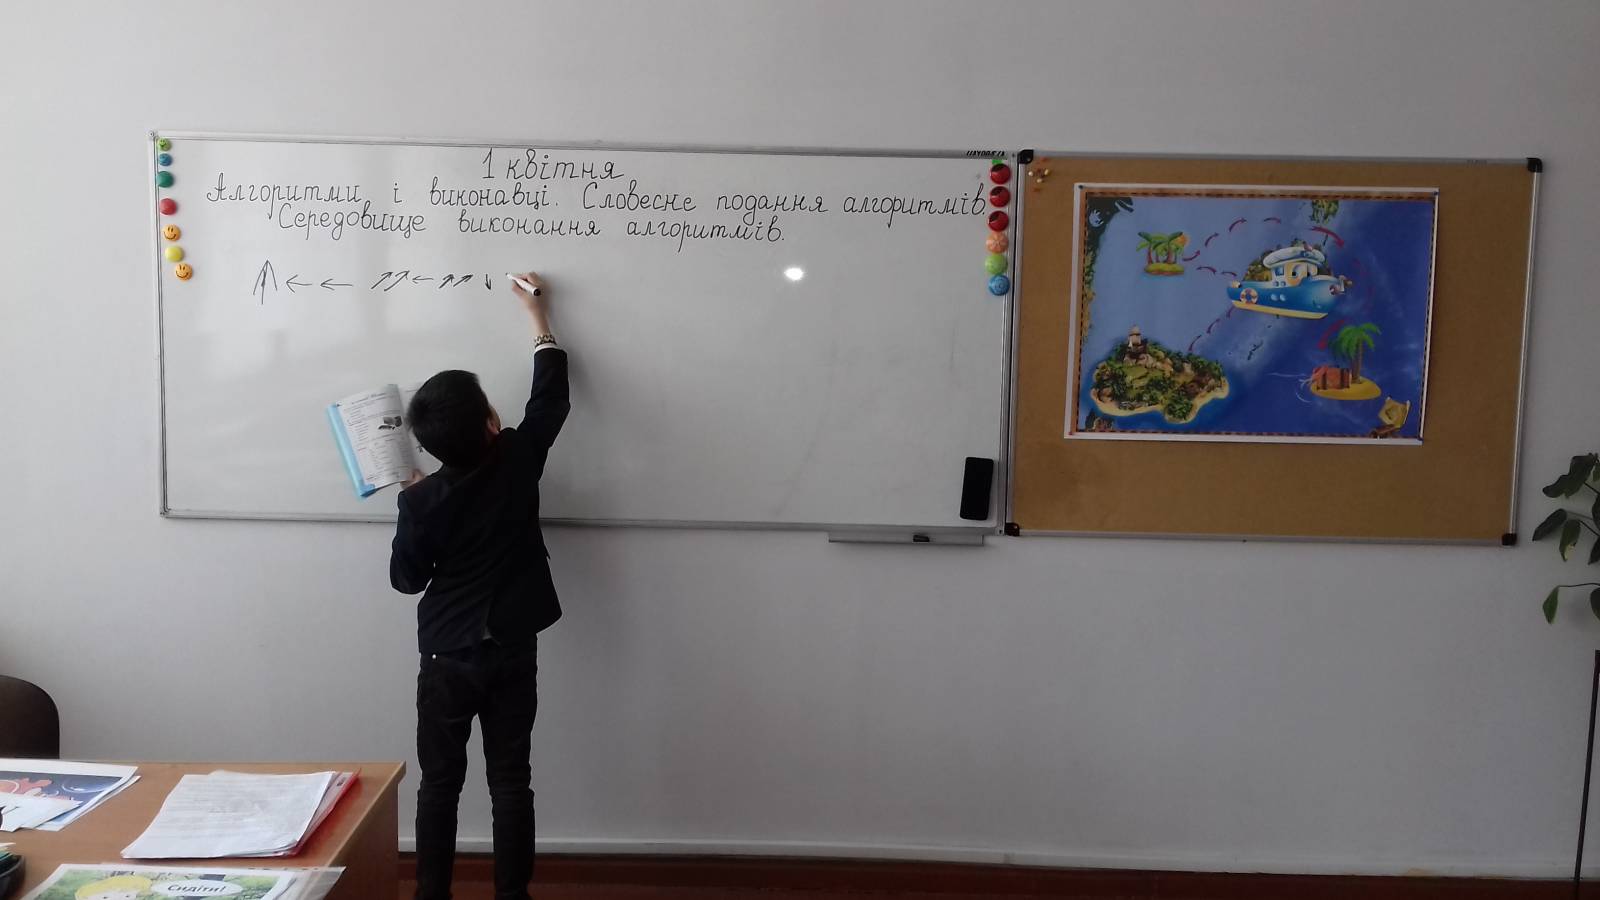 1 квітня
Алгоритми і виконавці. Словесне подання алгоритмів.
Середовище виконання алгоритмів.
Сидіти!